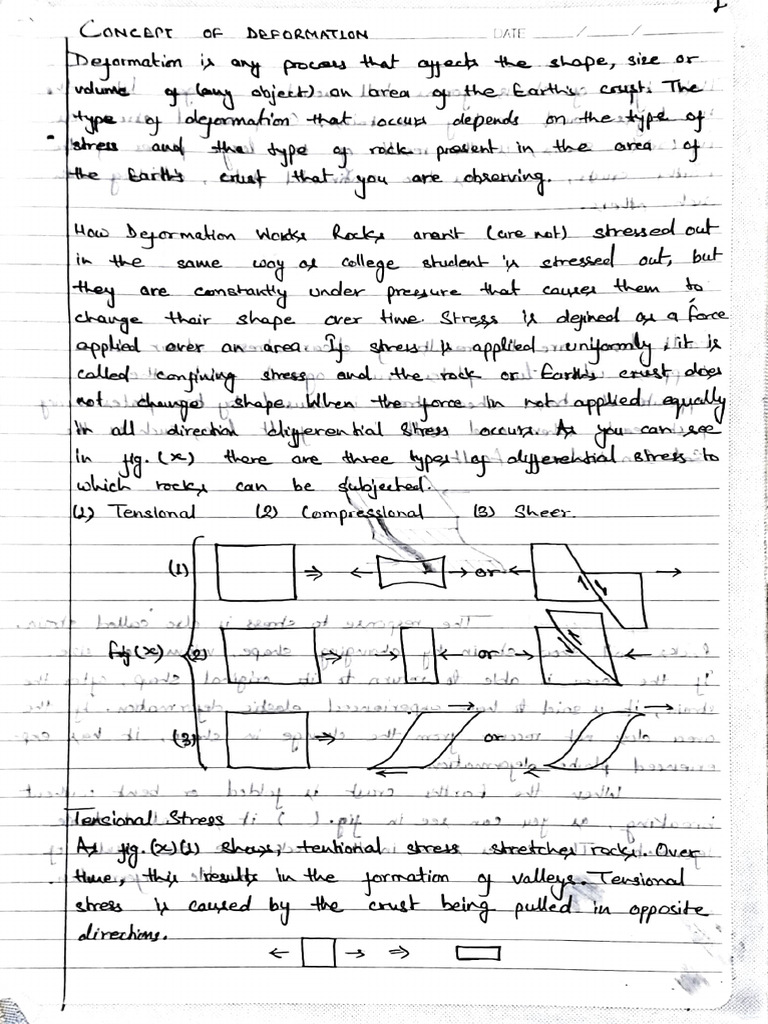 CONCEPT OF DEFORMATION DATE / /
Deformation is any process that affects the shape, size or
volume of (any object) an area of the Earth's crust. The
type of deformation that occurs depends on the type of
stress and the type of rock present in the area of
the Earth's crust that you are observing.
How Deformation Works Rocks aren't (are not) stressed out
in the same way as college student is stressed out, but
they are constantly under pressure that causes them to
change their shape over time. Stress is defined as a force
applied over an area. If stress is applied uniformly, it is
called confining stress and the rock or Earth's crust does
not change shape. When the force in not applied equally
in all direction differential stress occurs. As you can see
in fig.(x) there are three types of differential stress to
which rocks can be subjected.
(1) Tensional (2) Compressional (3) Sheer.
(1) or
fig(x) (2) or
(3) or
Tensional Stress
As fig.(x)(1) shows, tentional stress stretches rocks. Over
time, this results in the formation of valleys. Tensional
stress is caused by the crust being pulled in opposite
directions.